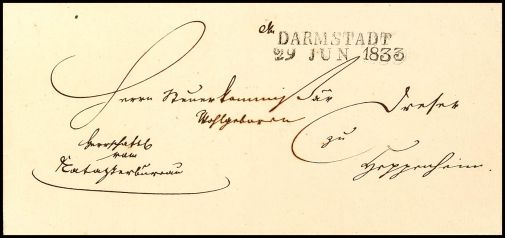 DARMSTADT
29 JUN 1833
Herrn Steuerkommissär Dreser
Wohlgeboren
zu
Heppenheim.
Herrschaftl
vom
Katasterbureau